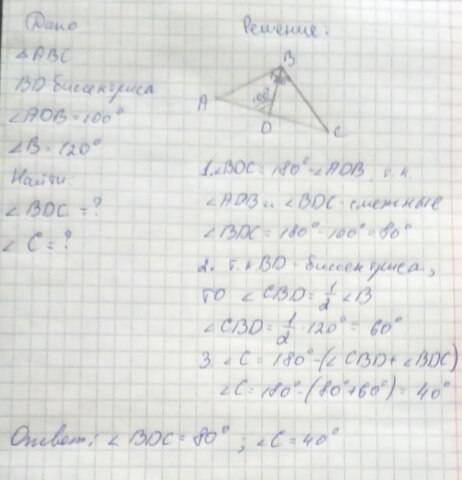 Дано
△ABC
BD биссектриса
∠ADB = 100°
∠B = 120°
Найти
∠BDC = ?
∠C = ?
Решение:
B
A
100°
D
C
1. ∠BDC = 180° - ∠ADB, т.к.
∠ADB и ∠BDC - смежные
∠BDC = 180° - 100° = 80°
2. т.к BD - биссектриса,
то ∠CBD = 1/2 ∠B
∠CBD = 1/2 · 120° = 60°
3. ∠C = 180° - (∠CBD + ∠BDC)
∠C = 180° - (80° + 60°) = 40°
Ответ: ∠BDC = 80° ; ∠C = 40°